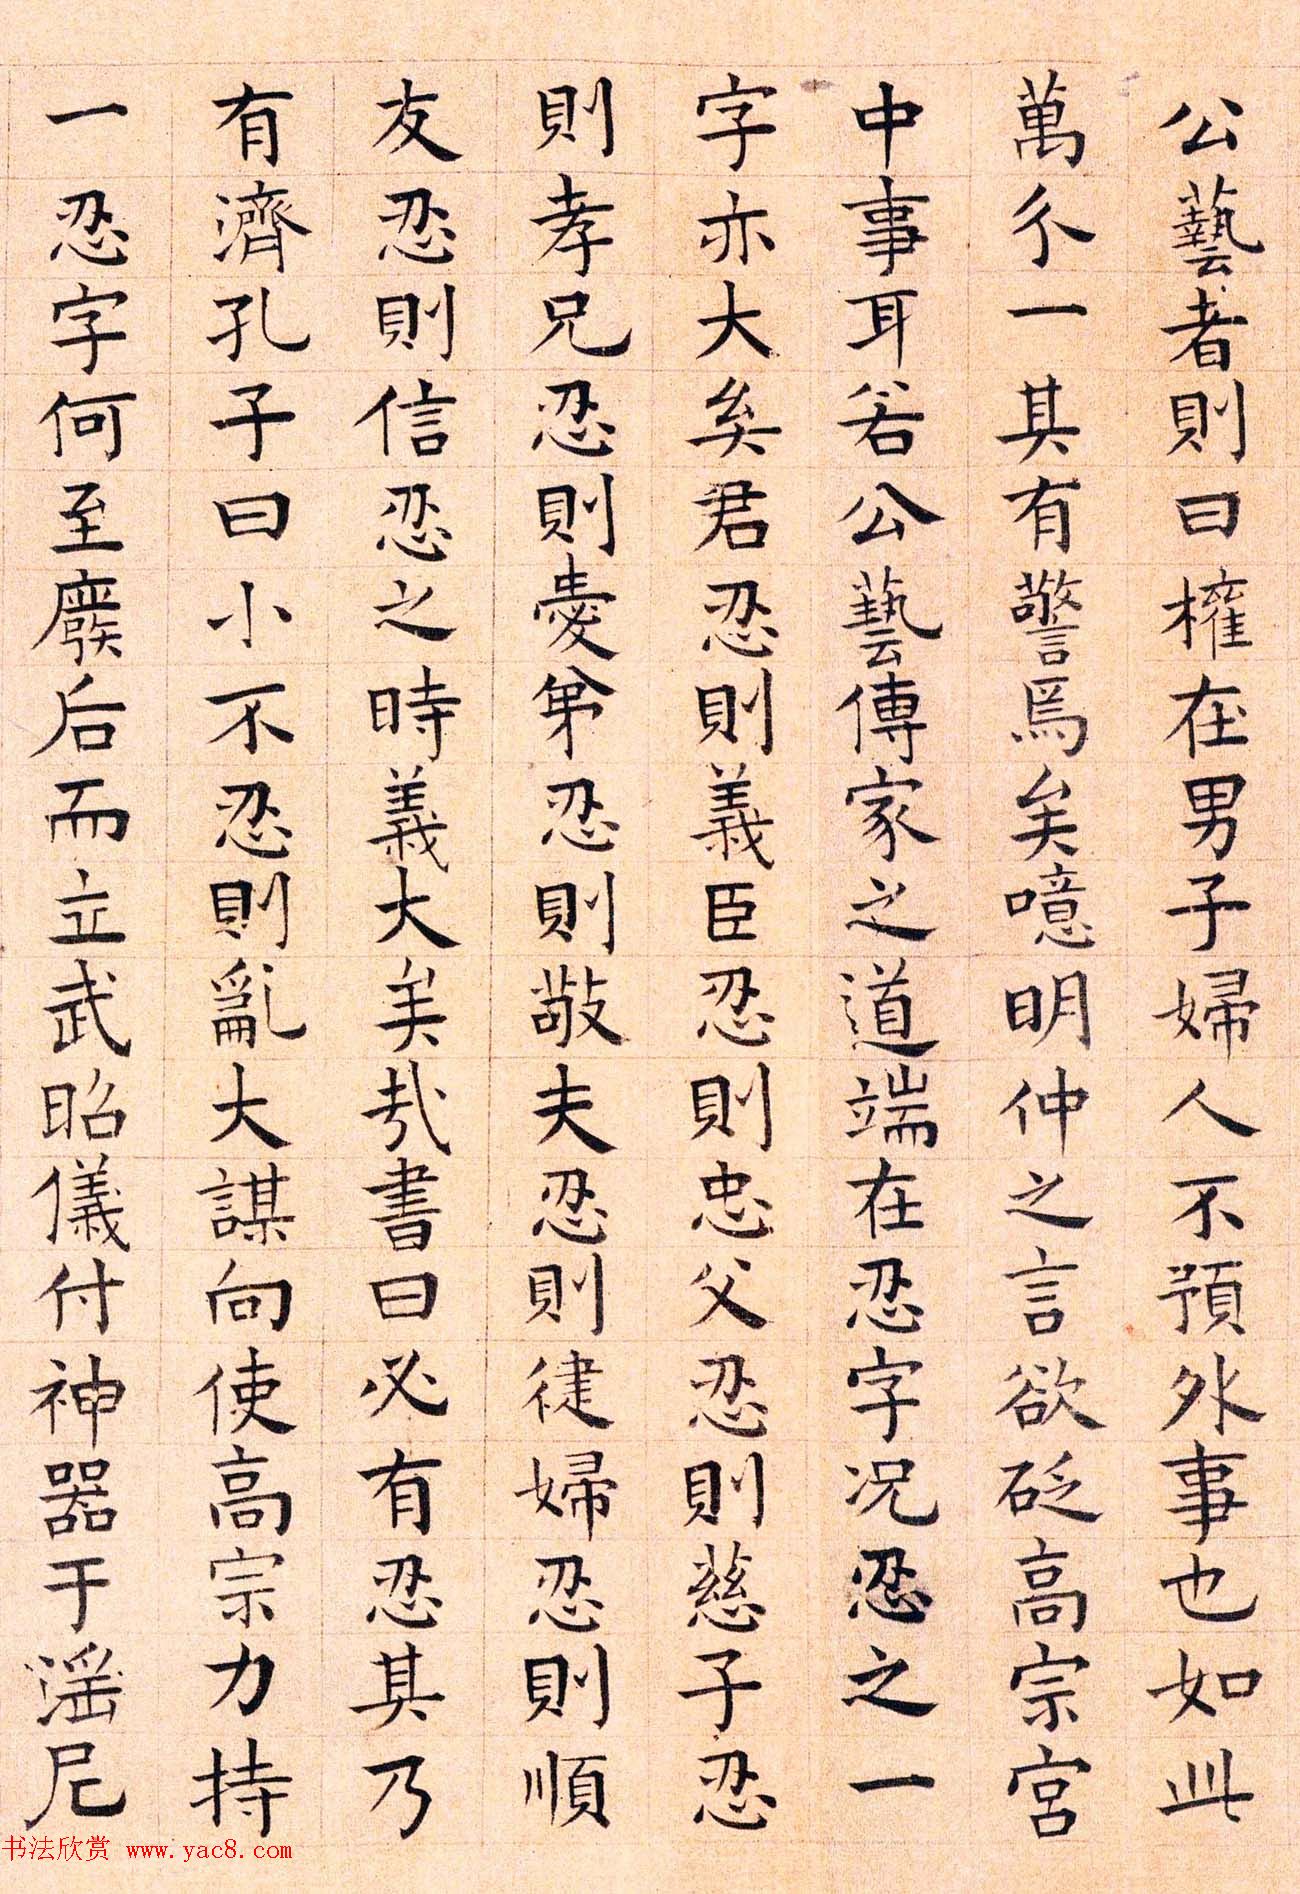 公藝者則曰權在男子婦人不預外事也如此
萬分一其有警焉矣噫明仲之言欲砭高宗宮
中事耳若公藝傳家之道端在忍字况忍之一
字亦大矣君忍則義臣忍則忠父忍則慈子忍
則孝兄忍則愛弟忍則敬夫忍則徤婦忍則順
友忍則信忍之時義大矣哉書曰必有忍其乃
有濟孔子曰小不忍則亂大謀向使高宗力持
一忍字何至廢后而立武昭儀付神器于淫尼
书法欣赏 www.yac8.com